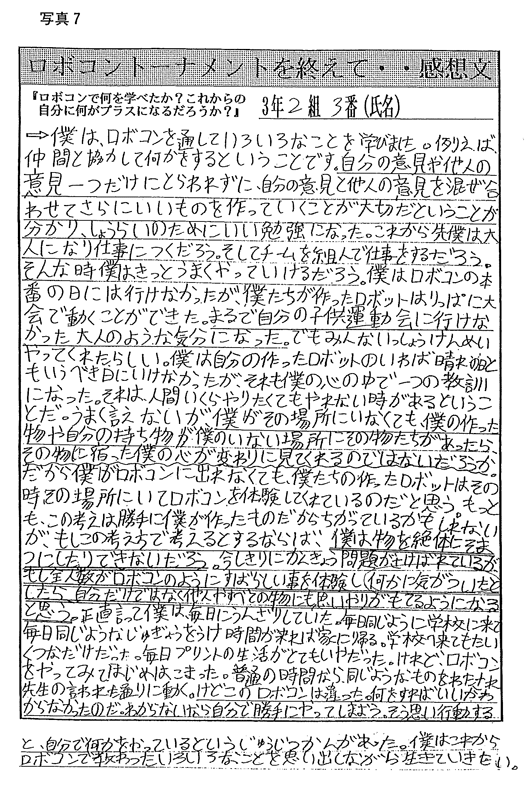 写真7
ロボコントーナメントを終えて・・感想文
『ロボコンで何を学べたか?これからの
自分に何がプラスになるだろうか?』
3年2組 3番(氏名)
⇒僕は、ロボコンを通していろいろなことを学びました。例えば、
仲間と協力して何かをするということです。自分の意見や他人の
意見一つだけにとらわれずに、自分の意見と他人の意見を混ぜ合
わせてさらにいいものを作っていくことが大切だということが
分かり、しょうらいのためにいい勉強になった。これから先僕は大
人になり仕事につくだろう。そしてチームを組んで仕事をするだろう。
そんな時僕はきっとうまくやっていけるだろう。僕はロボコンの本
番の日には行けなかったが、僕たちが作ったロボットはりっぱに大
会で動くことができた。まるで自分の子供運動会に行けな
かった大人のような気分になった。でもみんないっしょけんめい
やってくれたらしい。僕は自分の作ったロボットのいわば晴れ舞台と
もいうべき日にいけなかったが、それも僕の心の中で一つの教訓
になった。それは、人間いくらやりたくてもやれない時があるというこ
とだ。うまく言えないが僕がその場所にいなくても、僕の作った
物や自分の持ち物が僕のいない場所にその物たちがあったら、
その物に宿った僕の心が変わりに見てくれるのではないだろうか。
だから僕がロボコンに出れなくても、僕たちの作ったロボットはその
時その場所にいてロボコンを体験してくれているのだと思う。もっと
も、この考えは勝手に僕が作ったものだからちがっているかもしれない
が、もしこの考えちで考えるとするならば、僕は物を絶体にそま
つにしたりできないだろう。今しきりにかんきょう問題がさけばれているが
もし全人数がロボコンのようにすばらしい事を体験し何かに気がついたと
したら、自分だけではなく他人やすべての物にも思いやりがもてるようになる
と思う。正直言って僕は毎日にうんざりしていた。毎日同じように学校に来て
毎日同じようなじゅぎょうをうけ時間が来れば家に帰る。学校へ来てもたい
くつなだけだった。毎日プリントの生活がとてもいやだった。けれど、ロボコン
をやってみてはじめはこまった。普通の時間なら、同じようなものをわたされ
先生の言われた通りに動く。けどこのロボコンは違った。何をすればいいかわ
からなかったのだ。わからないなら自分で勝手にやってしまおう。そう思い行動する
と、自分で何かをやっているというじゅうじつかんがあった。僕はこれから
ロボコンで教わったいろいろなことを思い出しながら生きていきたい。